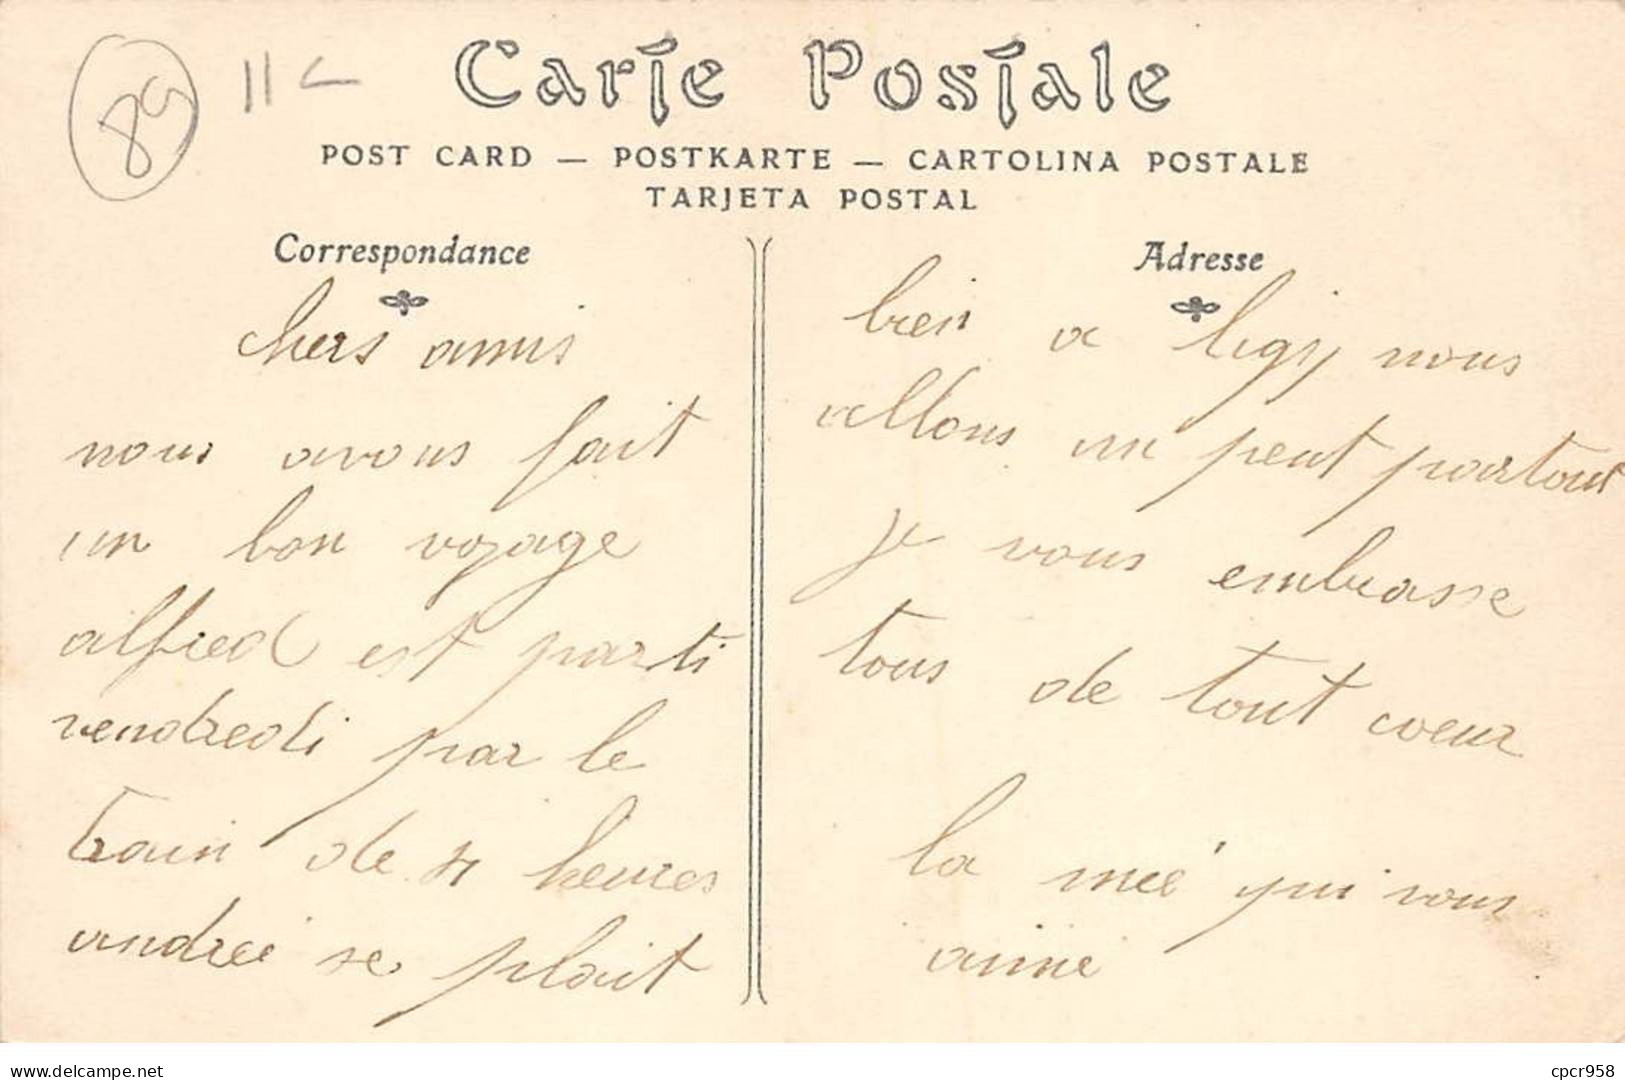 89 11c
Carte Postale
POST CARD — POSTKARTE — CARTOLINA POSTALE
TARJETA POSTAL
Correspondance
chers amis
nous avons fait
un bon voyage
alfred est parti
vendredi par le
train de 4 heures
andrée se plait
Adresse
bien a ligy nous
allons un peut partout
je vous embrasse
tous de tout coeur
la mée qui vous
aime
www.delcampe.net
cpcr958